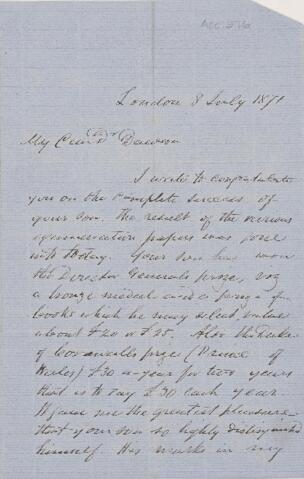 ACC 576
London 8 July 1871
My Dear Dr Dawson
I write to congratulate
you on the complete success of
your Son. the result of the various
examination papers was gone
into today. Your Son has won
the Director Generals prize, viz
a bronze medal and a prize of
books which he may select, value
about £20 or £25. Also the Duke
of Cornwalls prize (Prince of
Wales) £30 a-year for two years
that is to say £30 each year.
It gave me the greatest pleasure
that your son so highly distinguished
himself His marks in my